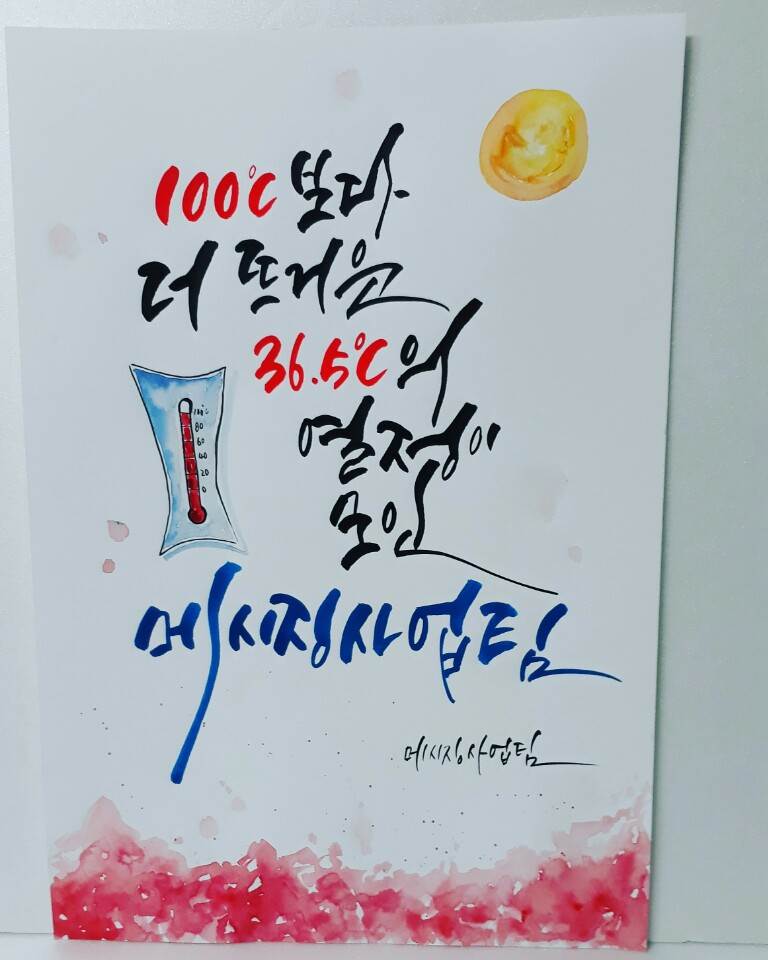 100℃ 보다
더 뜨거운
36.5℃의
열정이
모인
메시징사업팀
100℃
80
60
40
20
0
메시징사업팀